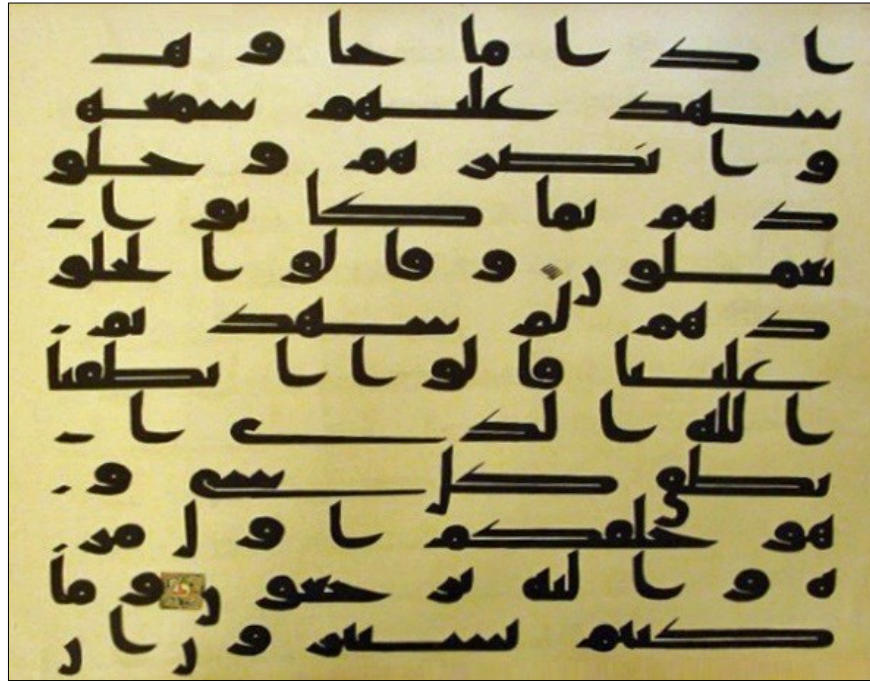 ا ذ ا ما جا و هـ
شهد عليهم سمعه
و ا بصر هم و جلو
د هم بما كا نو ا يـ
عملو ن و قا لو ا لجلو
د هم لم شهد تم
علينا قا لو ا ا نطقنا
ا لله ا لذي ا نـ
نطق كل شي و
هو خلقكم ا و ل مر
ه و ا ليه تر جعو ن و ما
كنتم تستتر و ن ا ن